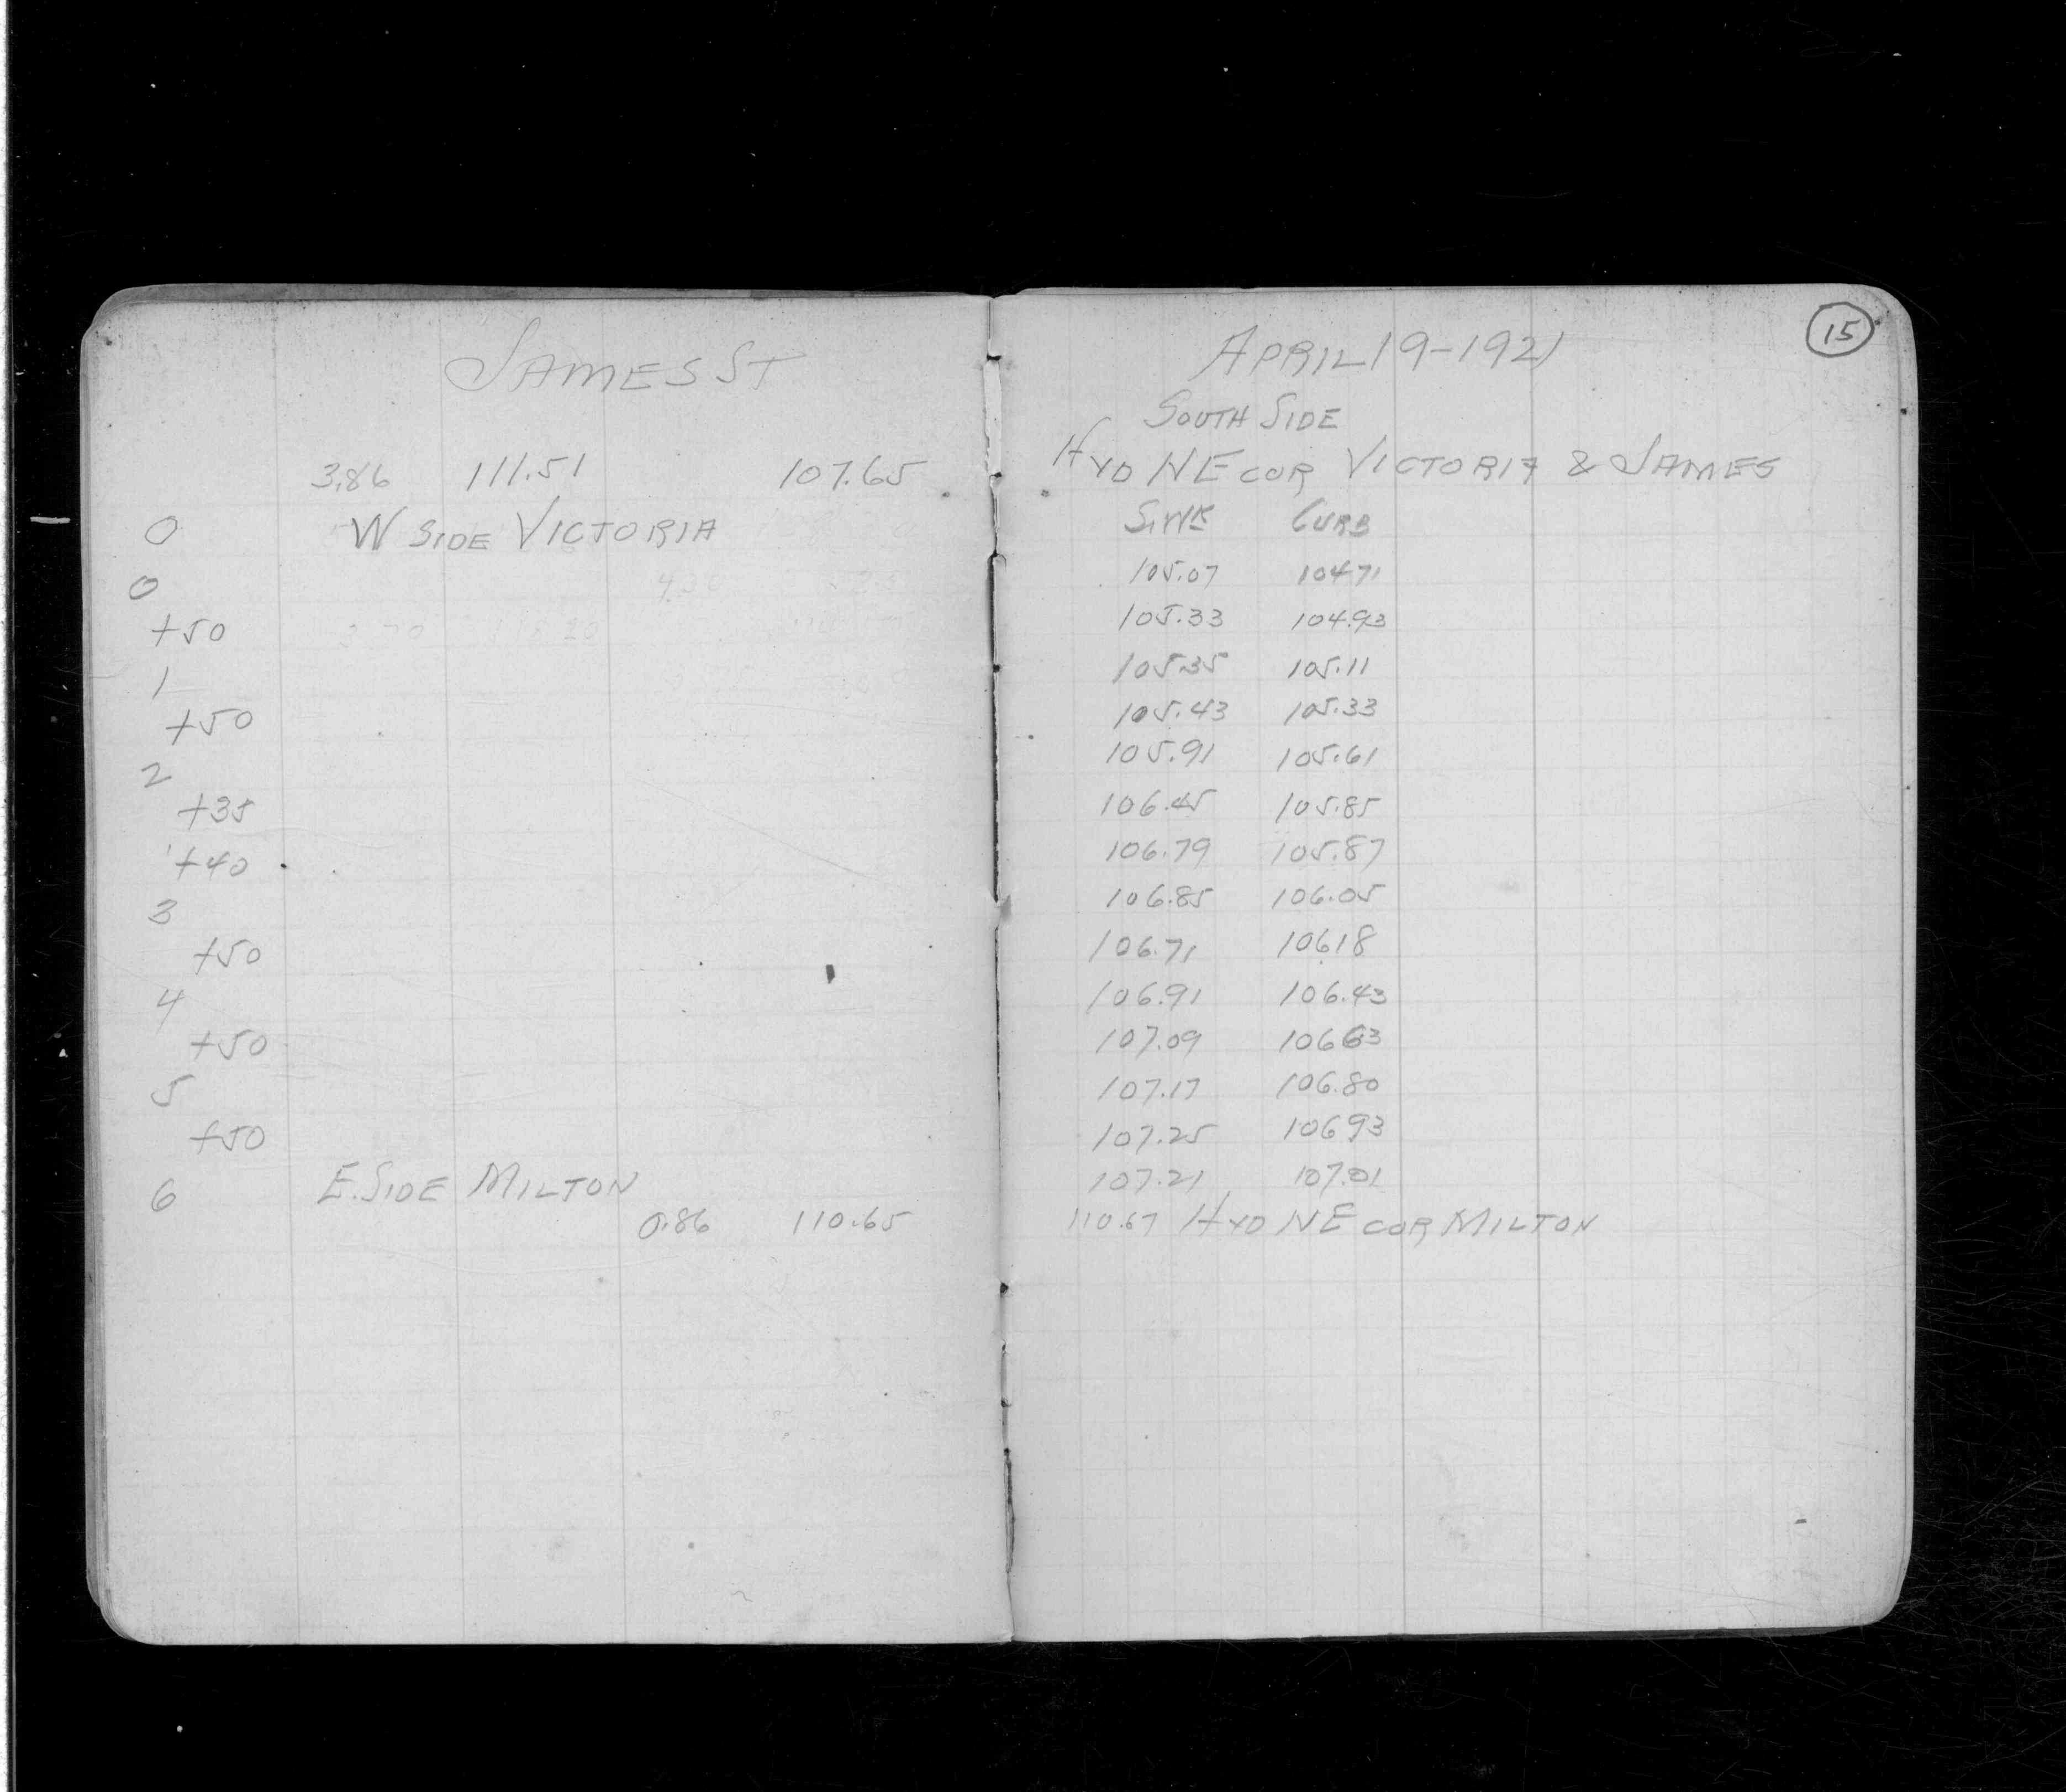 JAMES ST
3.86 111.51 107.65
0 W SIDE VICTORIA
0
+50
1
+50
2
+35
+40
3
+50
4
+50
5
+50
6 E. SIDE MILTON
0.86 110.65
15
APRIL 19-1921
SOUTH SIDE
HYD NE COR VICTORIA & JAMES
S.WK CURB
105.07 10471
105.33 104.93
105.35 105.11
105.43 105.33
105.91 105.61
106.45 105.85
106.79 105.87
106.85 106.05
106.71 106.18
106.91 106.43
107.09 10663
107.17 106.80
107.25 10693
107.21 107.01
110.67 HYD NE COR MILTON